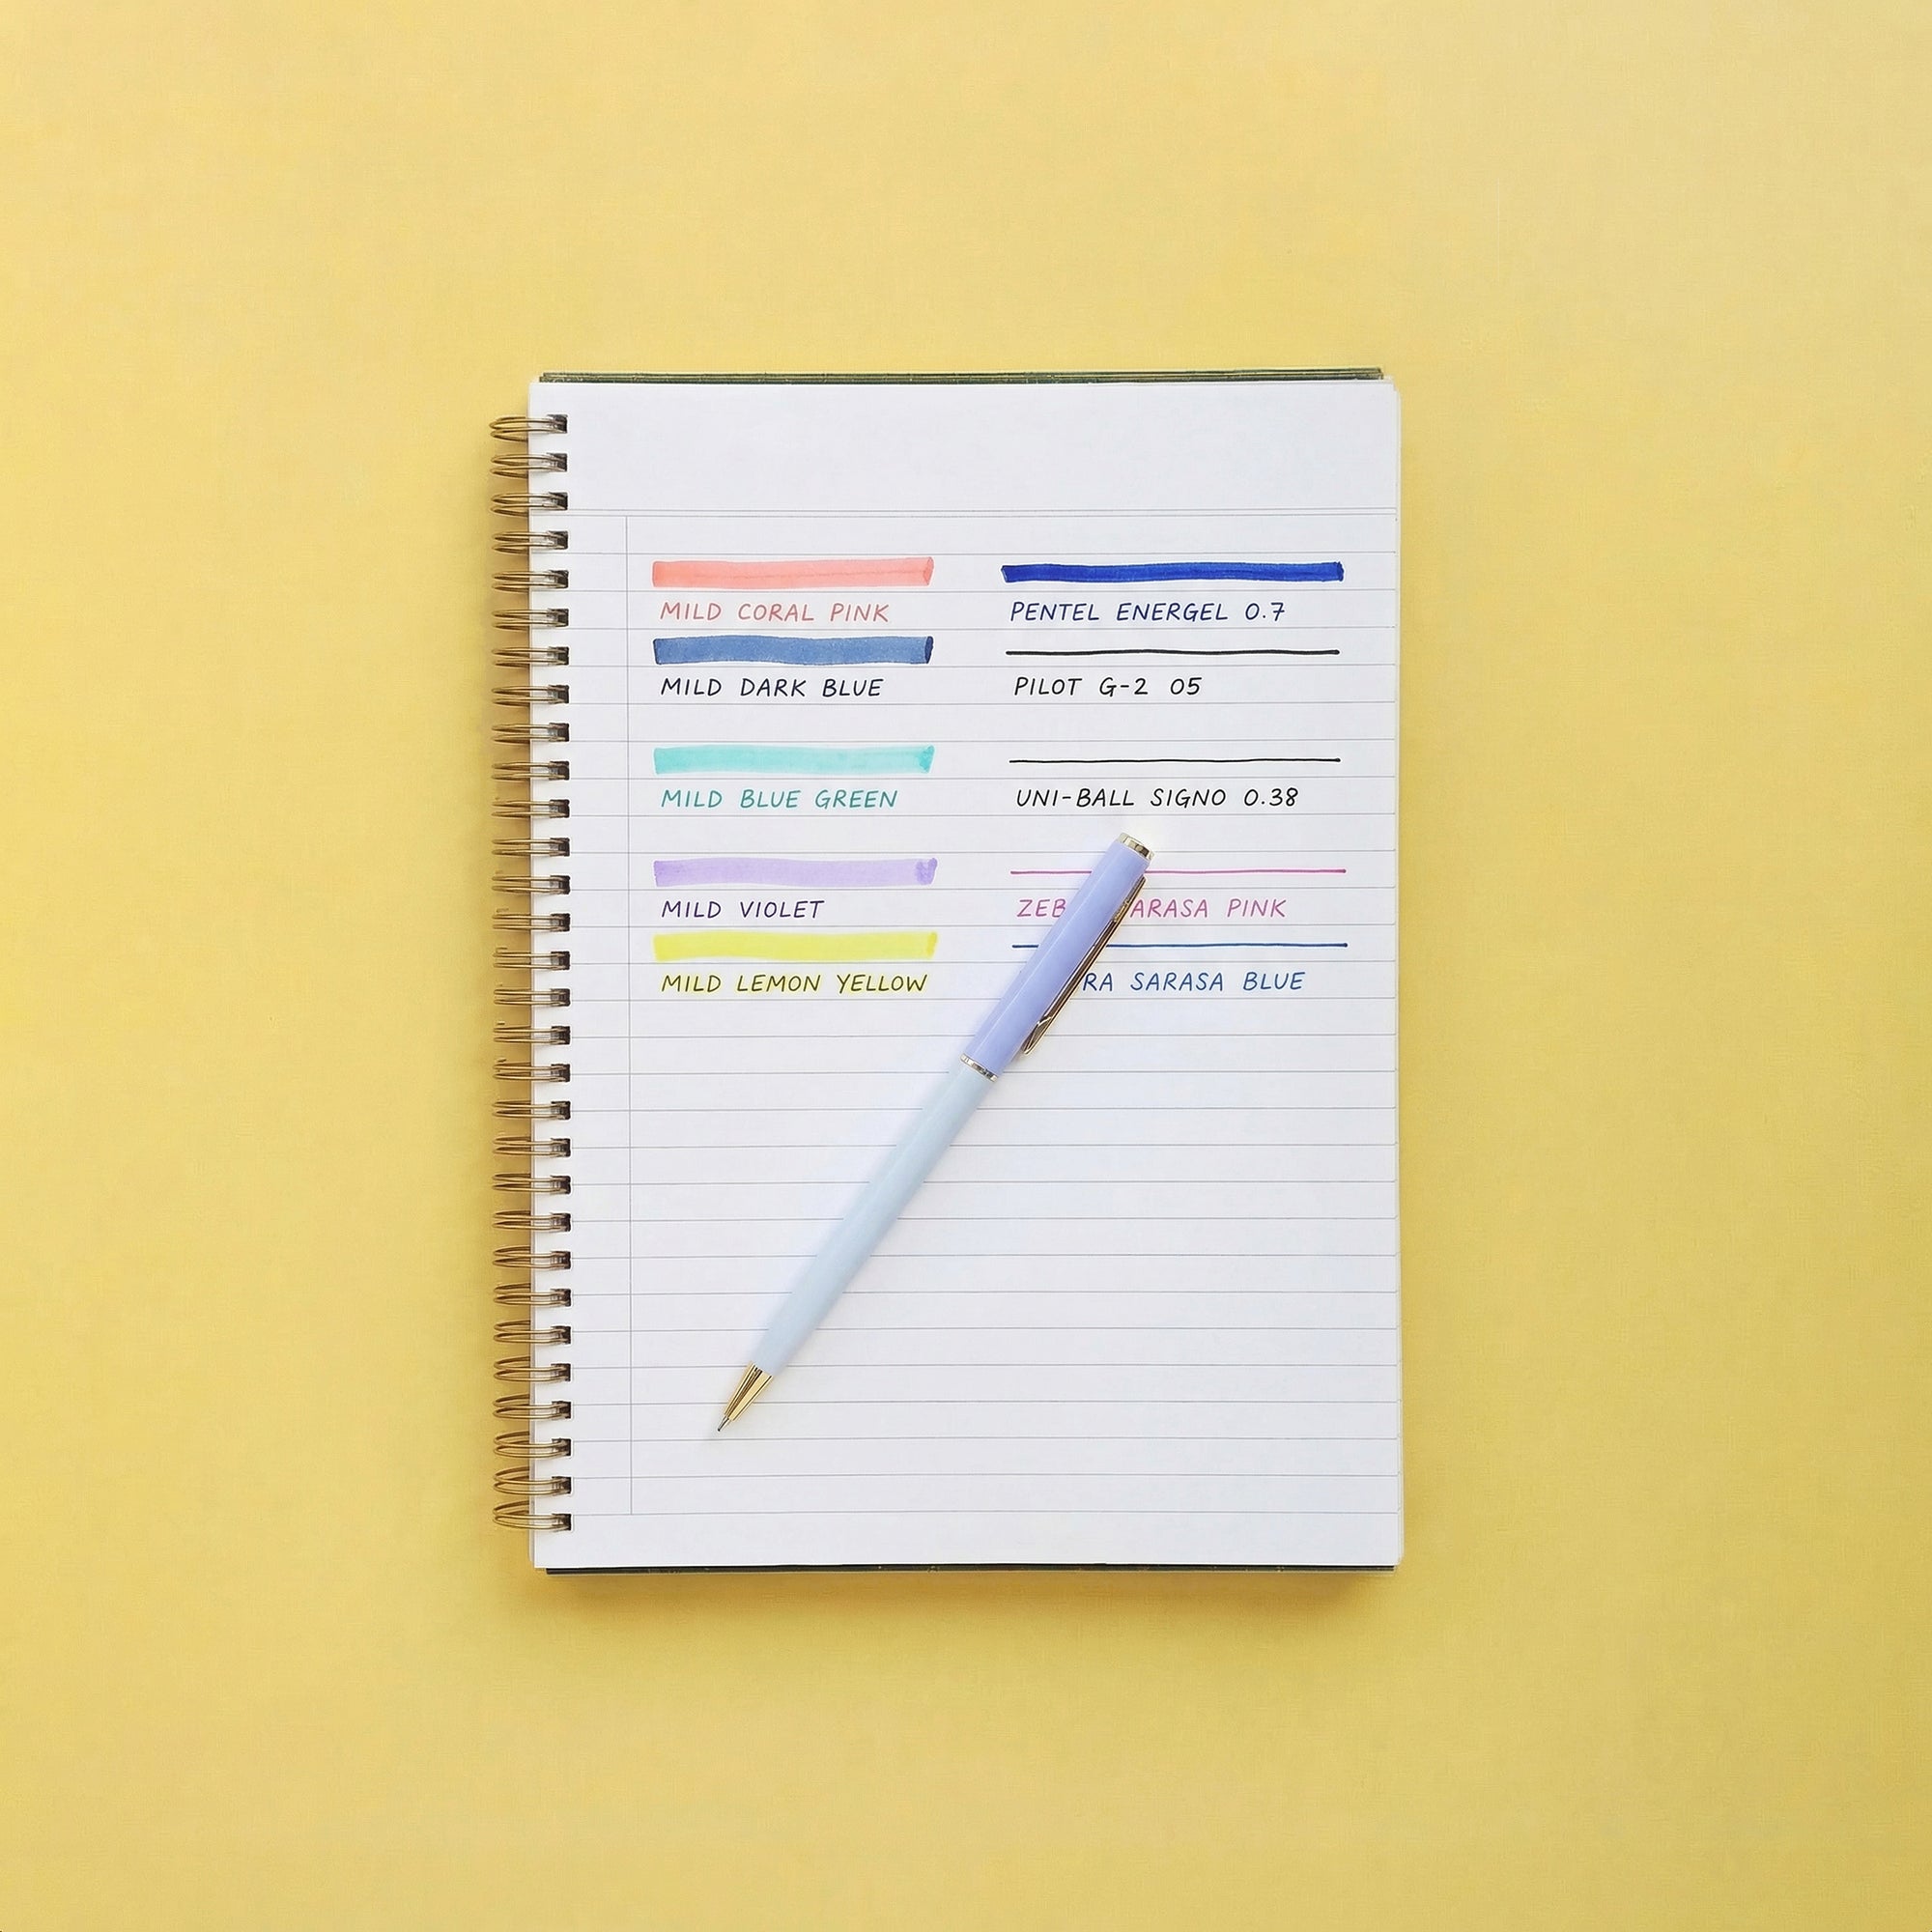 MILD CORAL PINK
PENTEL ENERGEL 0.7
MILD DARK BLUE
PILOT G-2 05
MILD BLUE GREEN
UNI-BALL SIGNO 0.38
MILD VIOLET
PINK
MILD LEMON YELLOW
SARASA BLUE